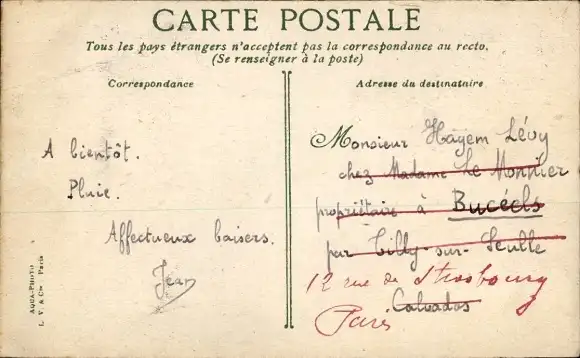 CARTE POSTALE
Tous les pays étrangers n'acceptent pas la correspondance au recto.
(Se renseigner à la poste)
Correspondance
A bientôt.
Pluie.
Affectueux baisers.
Jean
AQUA-PHOTO
L. V. & Cie Paris
Adresse du destinataire
Monsieur Hayem Lévy
chez Madame Le Monnier
propriétaire à Bucéels
par Tilly-sur-Seulle
12 rue de Strasbourg
Calvados
Paris